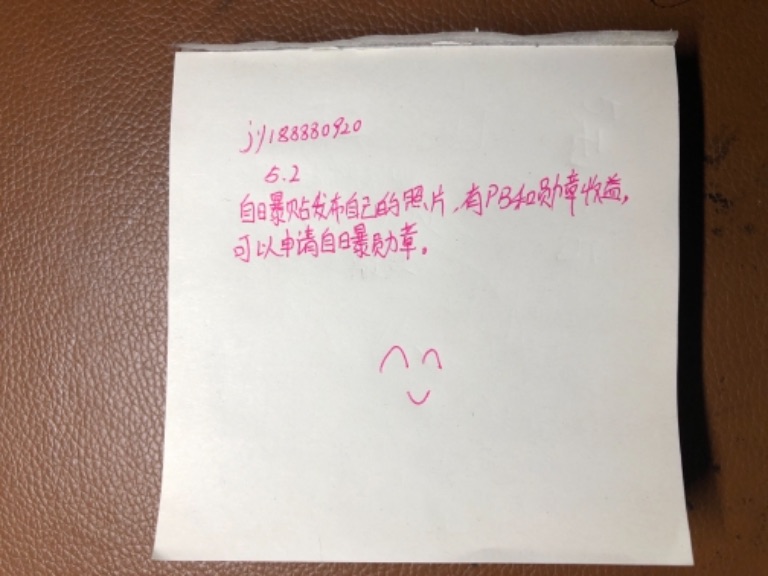 jy188880920
5.2
自曝贴发布自己的照片,有PB和勋章收益,
可以申请自曝勋章。